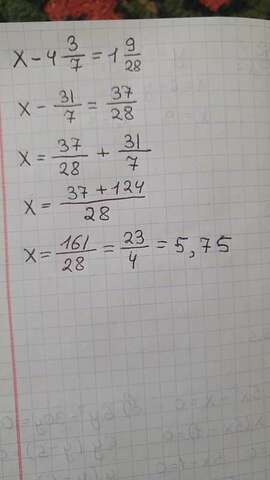 x - 4 3/7 = 1 9/28
x - 31/7 = 37/28
x = 37/28 + 31/7
x = (37 + 124)/28
x = 161/28 = 23/4 = 5,75